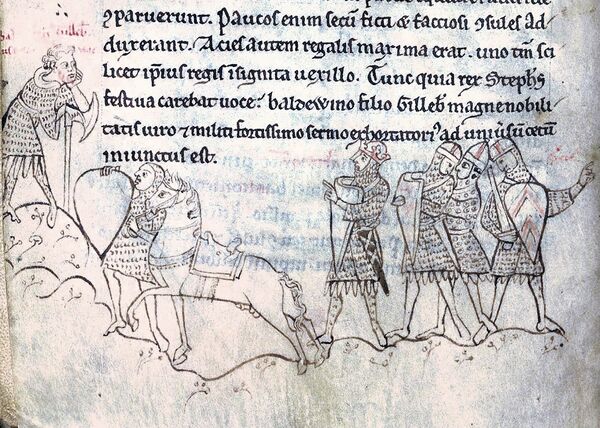 ꝯparuerunt. Paucos enim secū ficti & factiosi ꝯsules ad
duxerant. Acies autem regalis maxima erat. uno tm̄ sci
licet ip̄ius regis īsignita uexillo. Tunc quia rex Stephs
festiua carebat uoce: baldewino filio Gilleb̄ magne nobili
tatis uiro & militi fortissimo sermo exhortatori᾽ ad uniūsū cetū
iniunctus est.